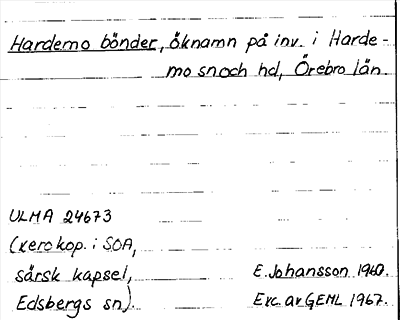 Hardemo bönder, öknamn på inv. i Harde-
mo sn och hd, Örebro län.
ULMA 24673
(xerokop. i SOA,
särsk kapsel,
Edsbergs sn).
E. Johansson 1960.
Exc. av GEML 1967.